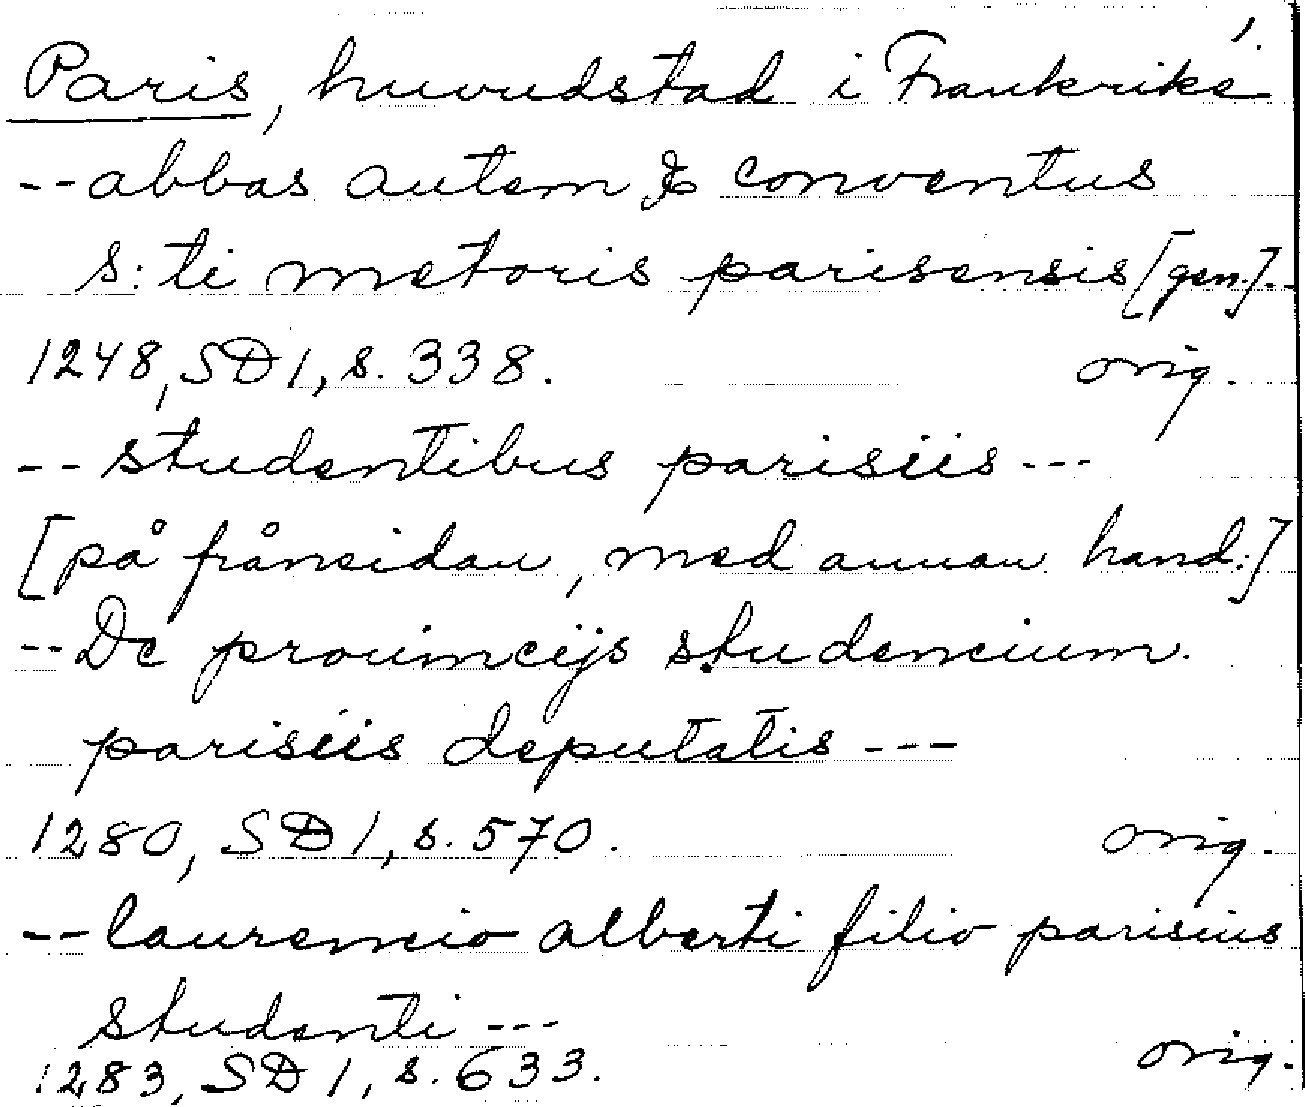 Paris, huvudstad i Frankrike
--abbas autem & conventus
s:ti metoris parisensis [gen.].
1248, SD 1, s. 338. orig.
-- studentibus parisiis ---
[på frånsidan, med annan hand:]
--De prouincijs studencium
parisiis deputatis ---
1280, SD 1, s. 570. orig.
--laurencio alberti filio parisius
studenti ---
1283, SD 1, s. 633. orig.